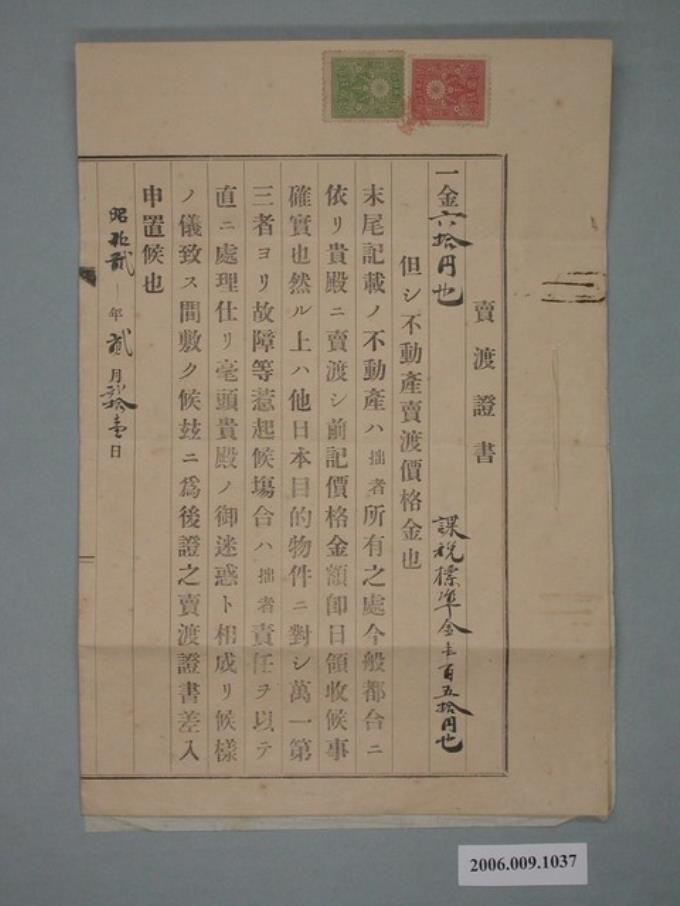 賣渡證書
一金六拾円也
課税標準金壱百五拾円也
但シ不動產賣渡價格金也
末尾記載ノ不動產ハ拙者所有之處今般都合ニ
依リ貴殿ニ賣渡シ前記價格金額卽日領收候事
確實也然ル上ハ他日本目的物件ニ對シ萬一第
三者ヨリ故障等惹起候塲合ハ拙者責任ヲ以テ
直ニ處理仕リ毫頭貴殿ノ御迷惑ト相成リ候樣
ノ儀致ス間敷ク候玆ニ爲後證之賣渡證書差入
申置候也
昭和拾貳年貳月貳拾壹日
2006.009.1037